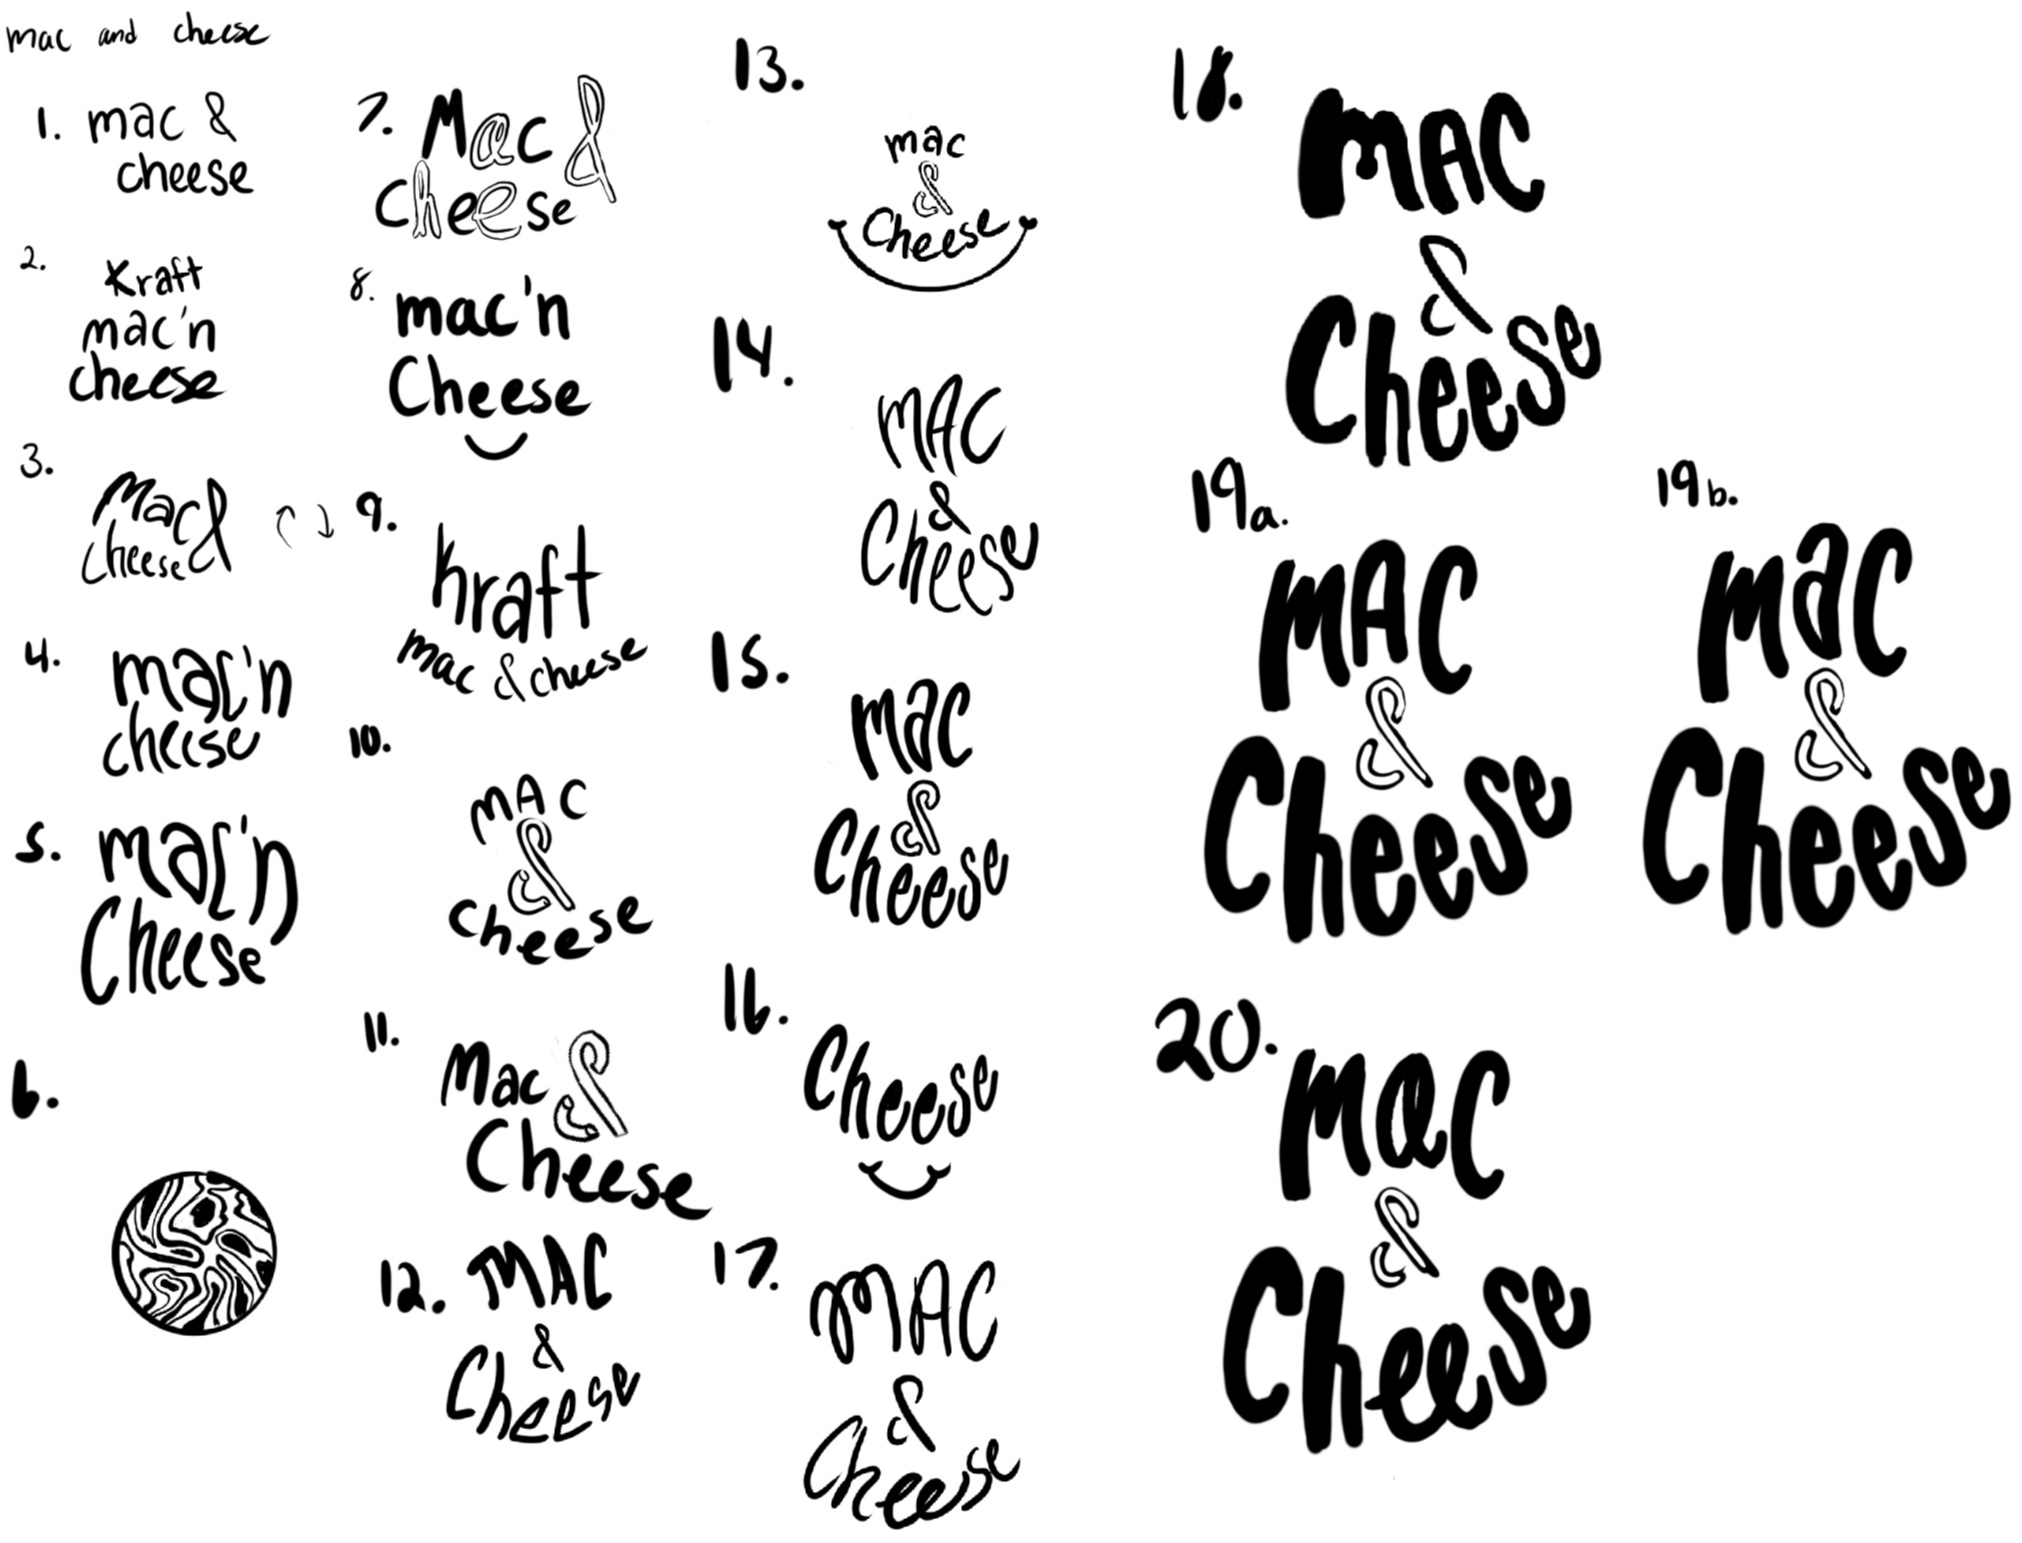 mac and cheese
1. mac &
cheese
2. Kraft
mac'n
cheese
3. Mac &
cheese
4. mac'n
cheese
5. mac'n
Cheese
6.
7. Mac &
Cheese
8. mac'n
Cheese
9. Kraft
mac & cheese
10.
mAC
&
cheese
11. Mac &
Cheese
12. MAC
&
Cheese
13.
mac
&
Cheese
14.
MAC
&
Cheese
15.
mac
&
Cheese
16.
Cheese
17.
MAC
&
Cheese
18.
MAC
&
Cheese
19a.
MAC
&
Cheese
19b.
mac
&
Cheese
20.
mac
&
Cheese